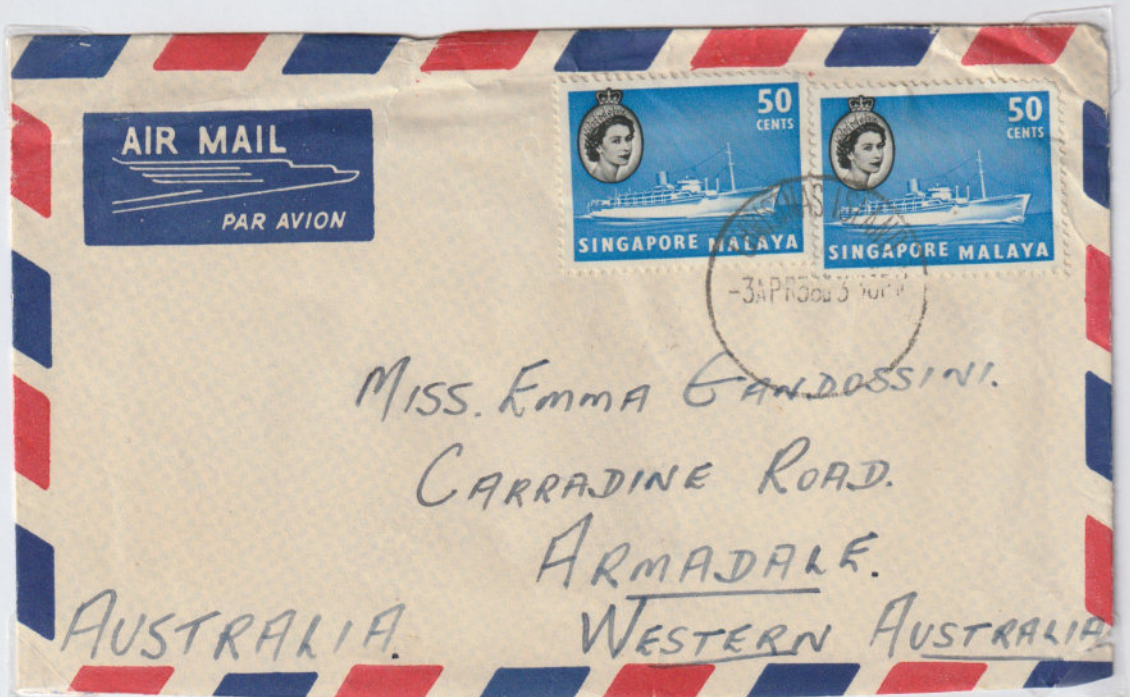 AIR MAIL
PAR AVION
50
CENTS
SINGAPORE MALAYA
50
CENTS
SINGAPORE MALAYA
CHRISTMAS ISLAND
-3APR58
MISS. EMMA GANDOSSINI.
CARRADINE ROAD.
ARMADALE.
WESTERN AUSTRALIA
AUSTRALIA.